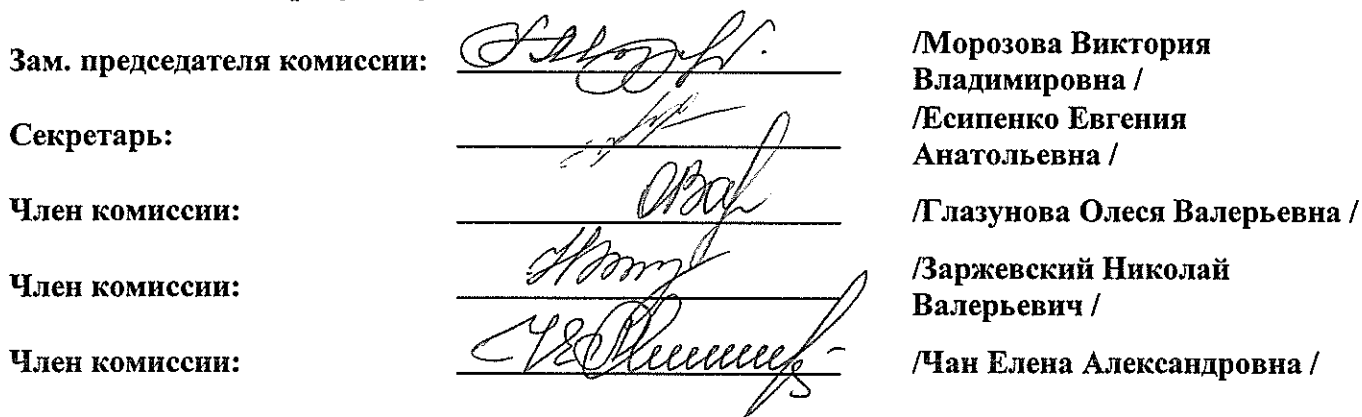 Зам. председателя комиссии: /Морозова Виктория
Владимировна /
Секретарь: /Есипенко Евгения
Анатольевна /
Член комиссии: /Глазунова Олеся Валерьевна /
Член комиссии: /Заржевский Николай
Валерьевич /
Член комиссии: /Чан Елена Александровна /